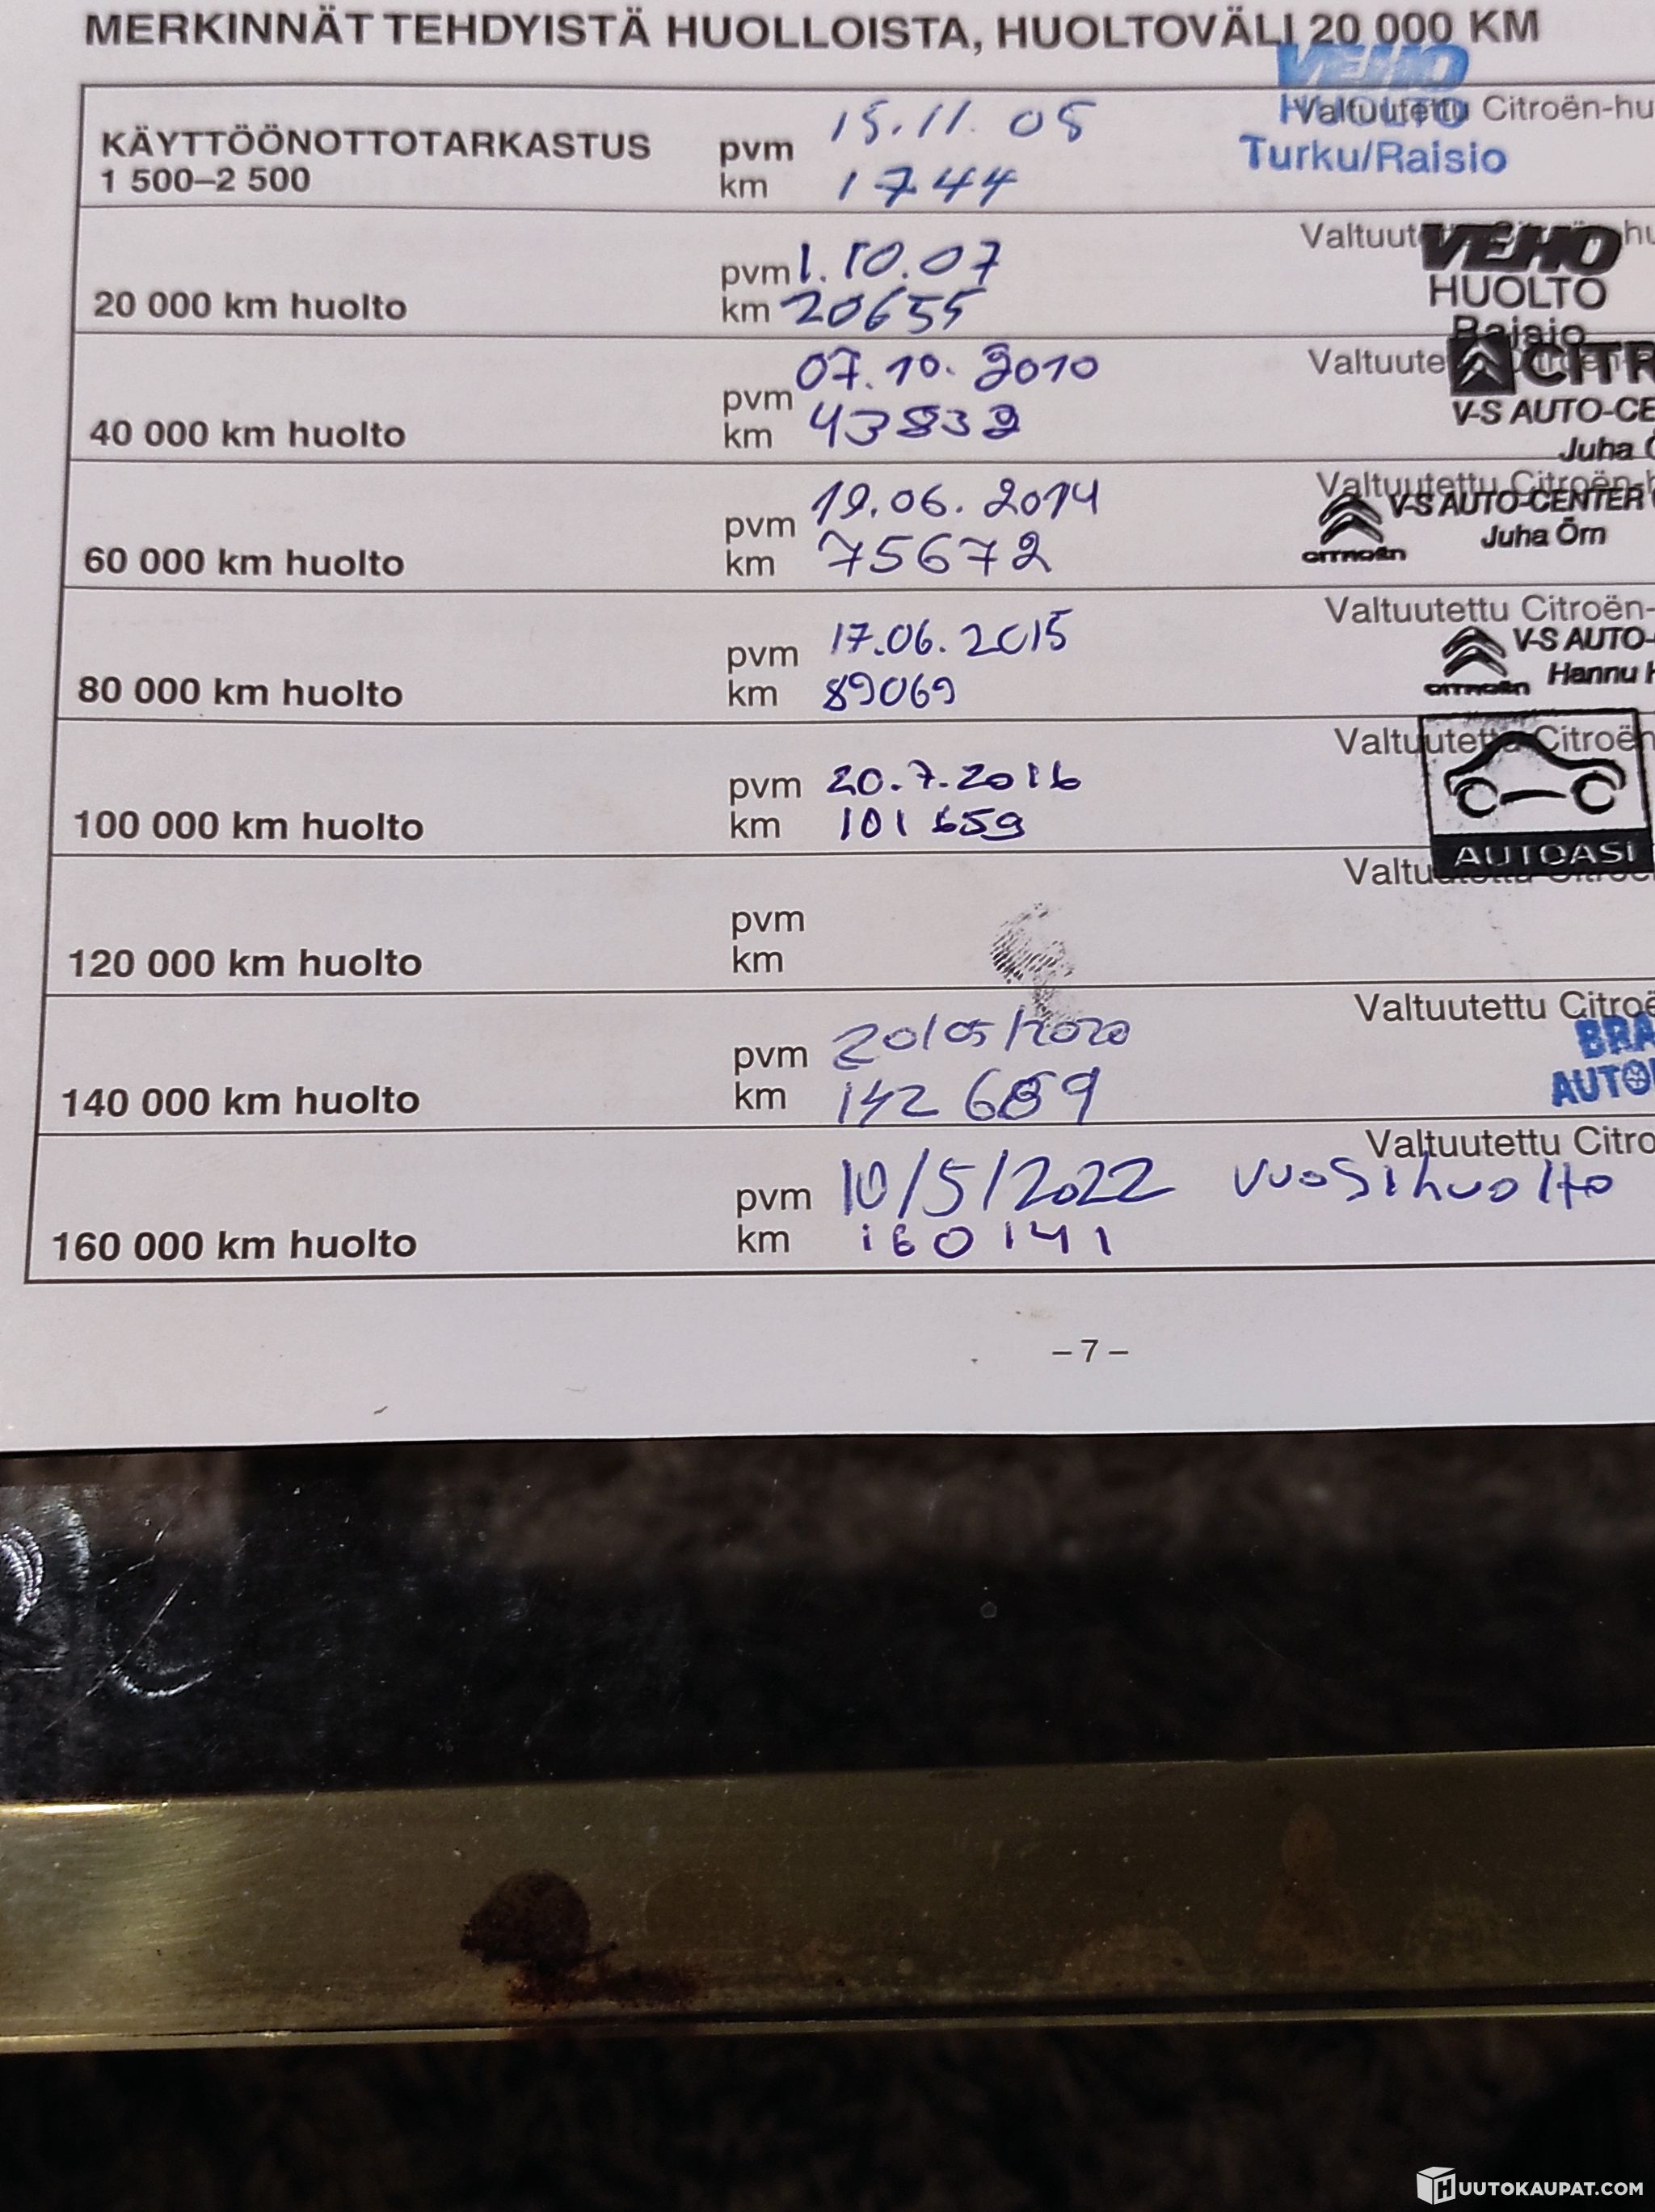 MERKINNÄT TEHDYISTÄ HUOLLOISTA, HUOLTOVÄLI 20 000 KM
VEHO
HUOLTO
Valtuutettu Citroën-hu
Turku/Raisio
KÄYTTÖÖNOTTOTARKASTUS
1 500–2 500
pvm 15.11.05
km 1744
Valtuut
VEHO
HUOLTO
Raisio
20 000 km huolto
pvm 1.10.07
km 20655
Valtuute
CITR
V-S AUTO-CE
Juha Ö
40 000 km huolto
pvm 07.10.2010
km 43832
Valtuutettu Citroën-h
V-S AUTO-CENTER
Juha Örn
CITROËN
60 000 km huolto
pvm 19.06.2014
km 75672
Valtuutettu Citroën-
V-S AUTO-
Hannu H
CITROËN
80 000 km huolto
pvm 17.06.2015
km 89069
Valtuutettu Citroën
AUTOASI
100 000 km huolto
pvm 20.7.2016
km 101659
Valtuutettu Citroë
120 000 km huolto
pvm
km
Valtuutettu Citroë
BRA
AUTO
140 000 km huolto
pvm 20/05/2020
km 142 689
Valtuutettu Citro
160 000 km huolto
pvm 10/5/2022 vuosihuolto
km 160141
– 7 –
HUUTOKAUPAT.COM